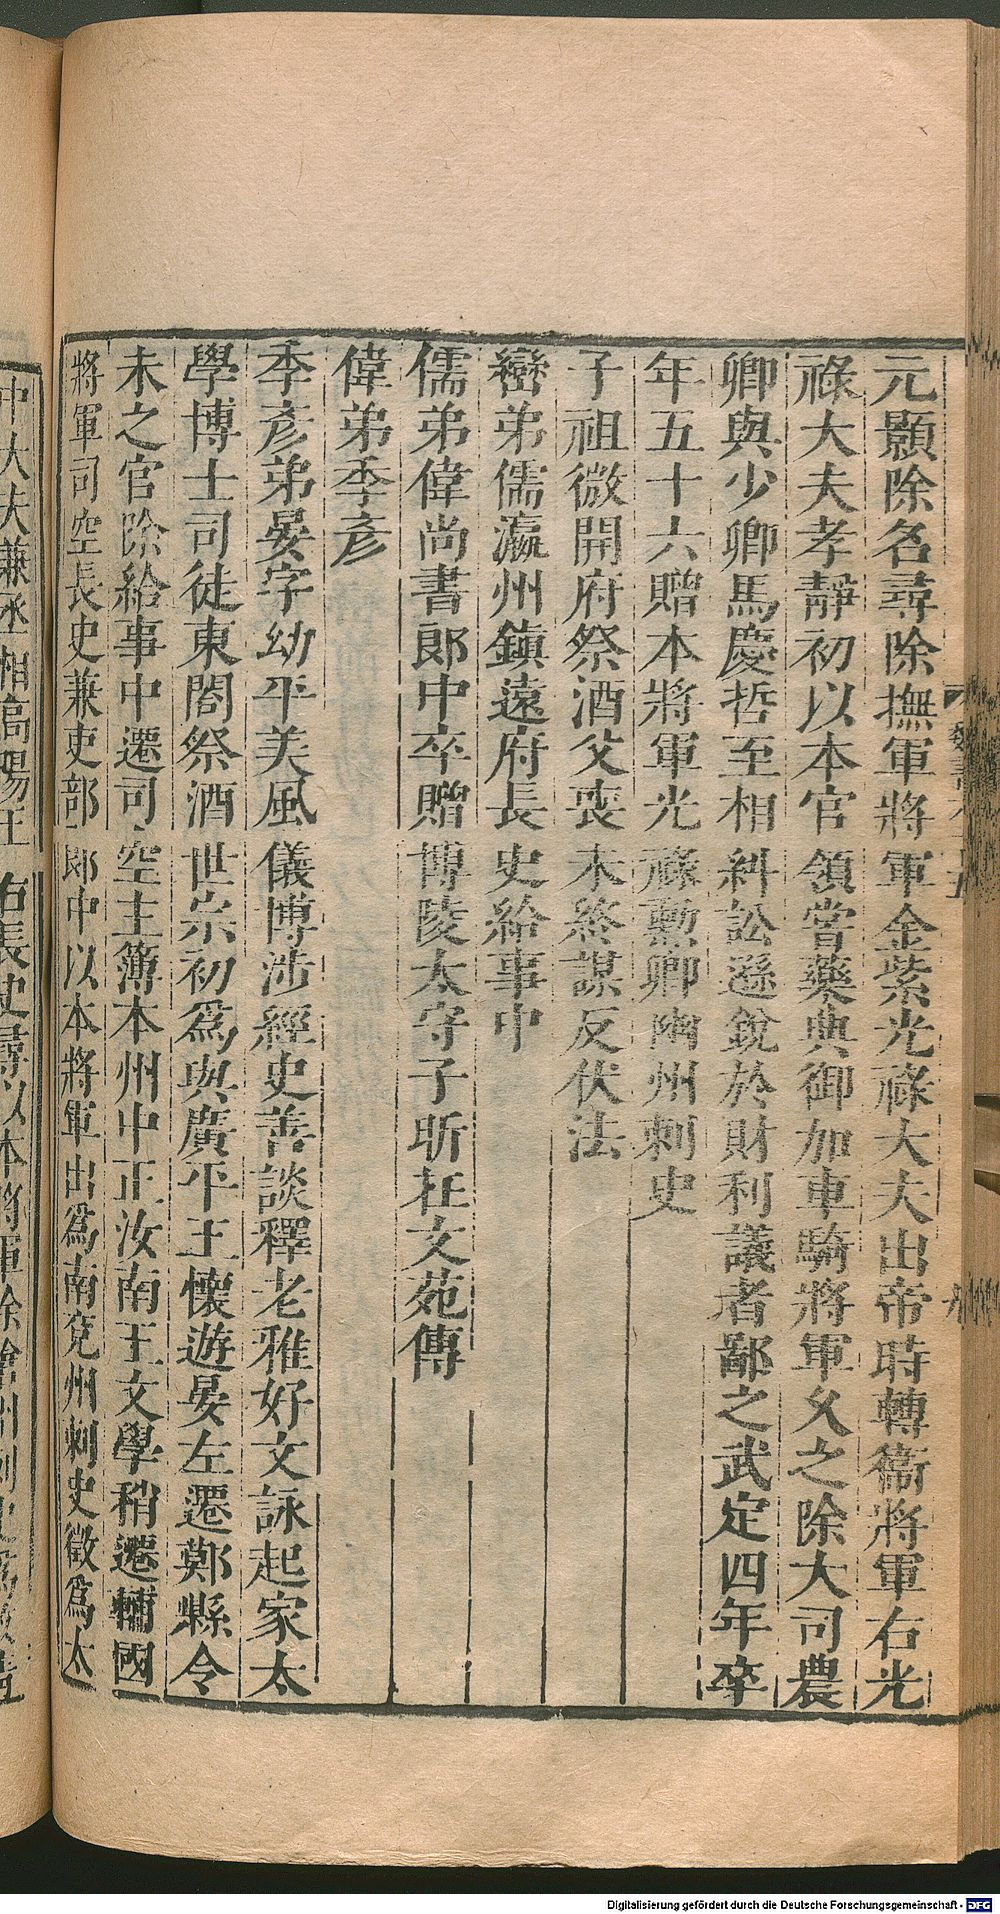 元顥除名尋除撫軍將軍金紫光祿大夫出帝時轉衞將軍右光
祿大夫孝靜初以本官領嘗藥典御加車騎將軍久之除大司農
卿與少卿馬慶哲至相糾訟遜銳於財利議者鄙之武定四年卒
年五十六贈本將軍光祿勳卿幽州刺史
子祖微開府祭酒父喪未終謀反伏法
巒弟儒瀛州鎮遠府長史給事中
儒弟偉尚書郎中卒贈博陵太守子昕在文苑傳
偉弟季彥
季彥弟晏字幼平美風儀博涉經史善談釋老雅好文詠起家太
學博士司徒東閤祭酒世宗初爲與廣平王懷遊晏左遷鄚縣令
未之官除給事中遷司空主簿本州中正汝南王文學稍遷輔國
將軍司空長史兼吏部郎中以本將軍出爲南兗州刺史徵爲太
中大夫兼丞相高陽王右長史尋以本將軍除滄州刺史爲政清
Digitalisierung gefördert durch die Deutsche Forschungsgemeinschaft - DFG